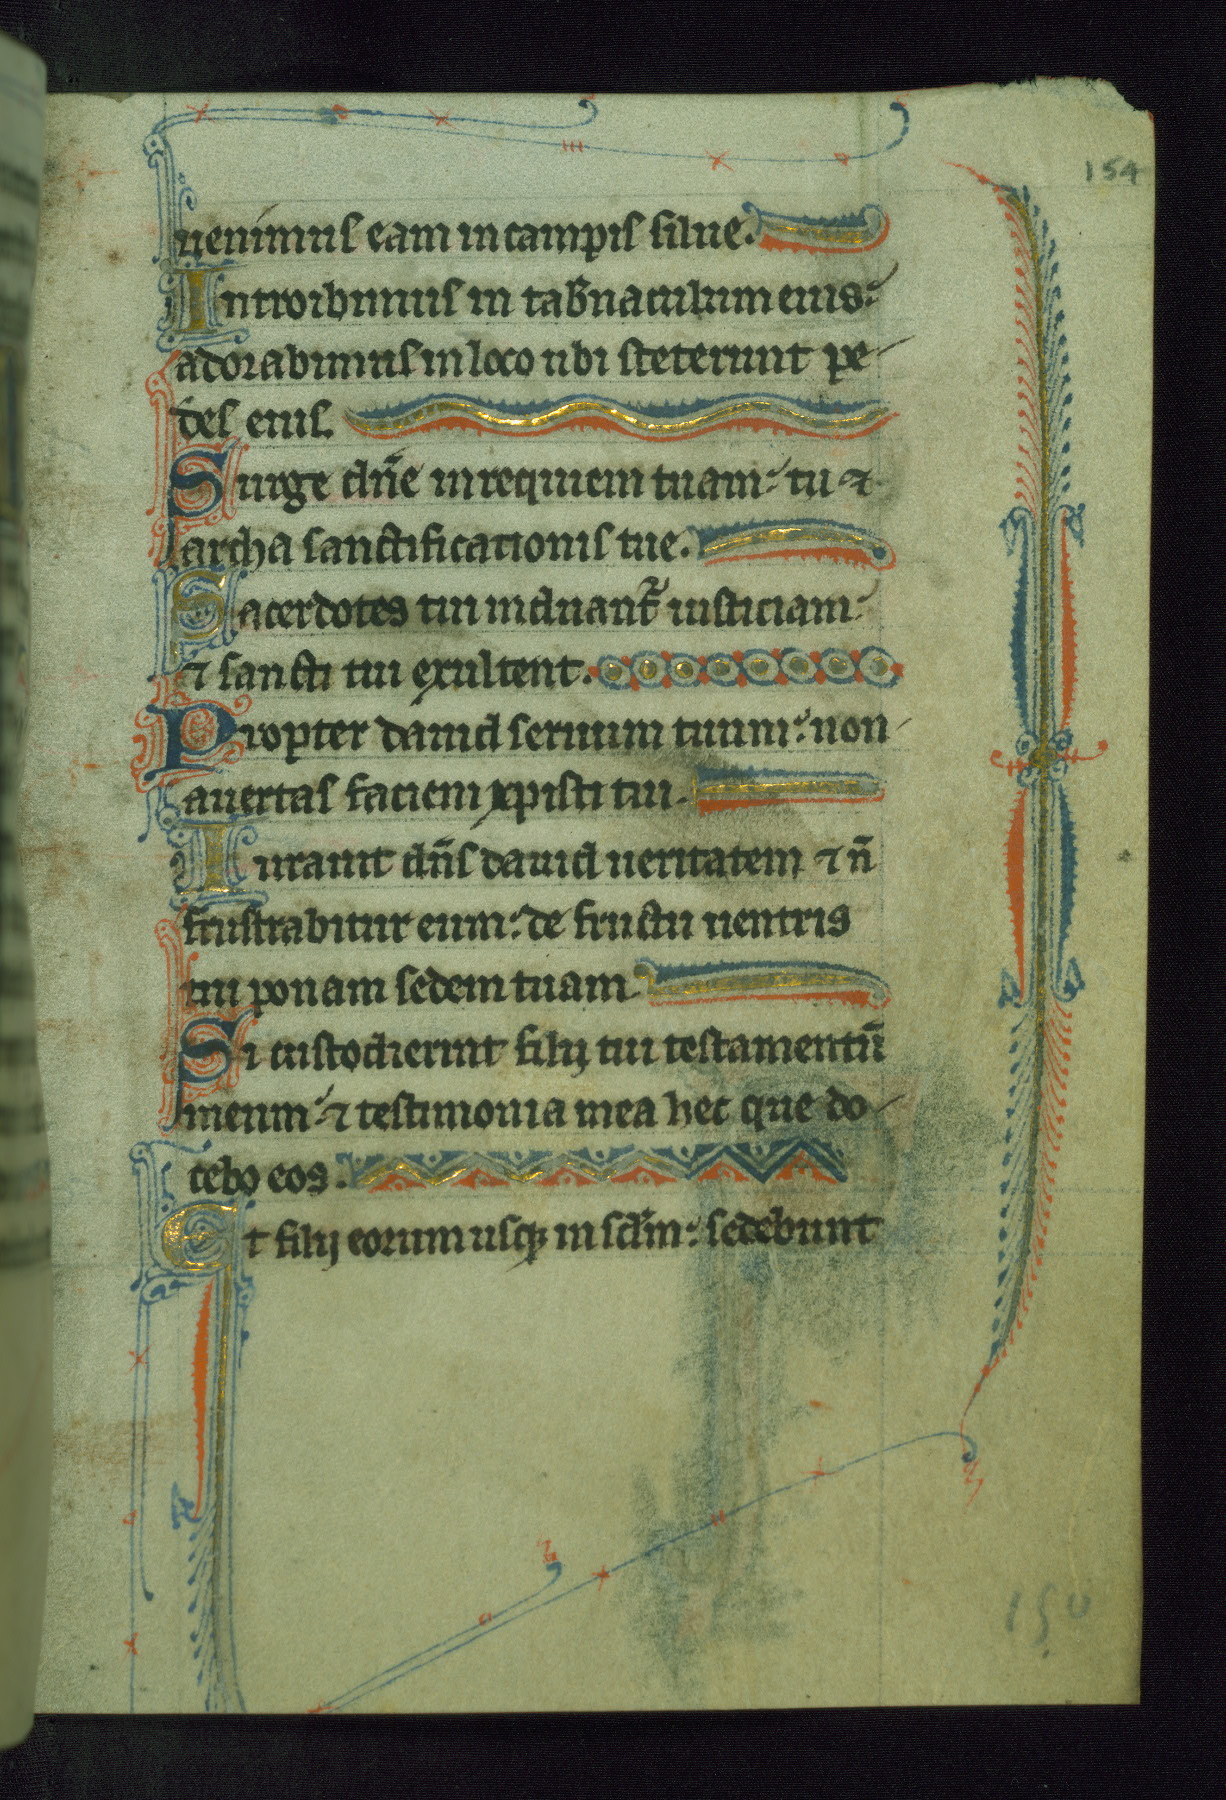 154
uenimus eam in campis silue.
Introibimus in tab̄naculum eius:
adorabimus in loco ubi steterunt pe
des eius.
Surge dn̄e in requiem tuam: tu ⁊
archa sanctificationis tue.
Sacerdotes tui induant᷑ iusticiam:
⁊ sancti tui exultent.
Propter dauid seruum tuum: non
auertas faciem xpisti tui.
Iurauit dn̄s dauid ueritatem ⁊ n̄
frustrabitur eum: de fructu uentris
tui ponam sedem tuam.
Si custodierint filij tui testamentū
meum: ⁊ testimonia mea hec que do
cebo eos.
Et filij eorum usqꝫ in sclm̄: sedebunt
150